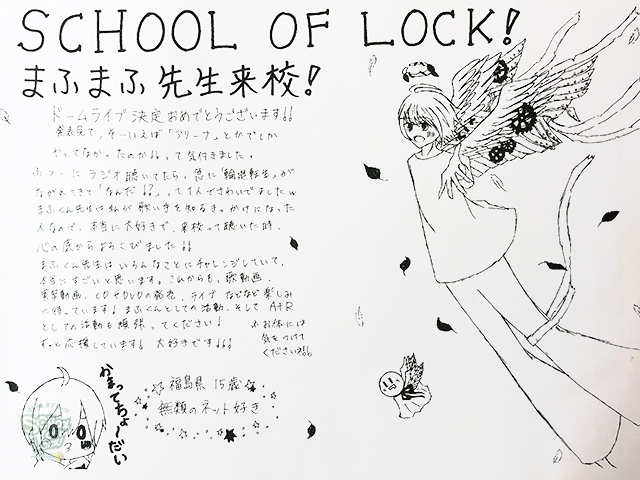 SCHOOL OF LOCK!
まふまふ先生来校!
ドームライブ決定おめでとうございます!!
発表見て、そーいえば「アリーナ」とかでしか
やってなかったのか!!って気付きました。
ふつーにラジオ聴いてたら、急に「輪廻転生」が
ながれてきて「なんだ!?」って1人でさわいでましたw
まふくん先生は私が歌い手を知るきっかけになった
人なので、本当に大好きで、来校って聴いた時、
心の底からよろこびました!!
まふくん先生はいろんなことにチャレンジしていて、
本当にすごいと思います。これからも、歌動画、
実況動画、CDやDVDの発売、ライブなどなど楽しみ
に待っています!まふくんとしての活動、そして A↑R
としての活動も頑張ってください!
ずっと応援しています! 大好きです!!!
お体には
気をつけて
くださいね!!
かまってちょーだい
福島県 15歳
無類のネット好き